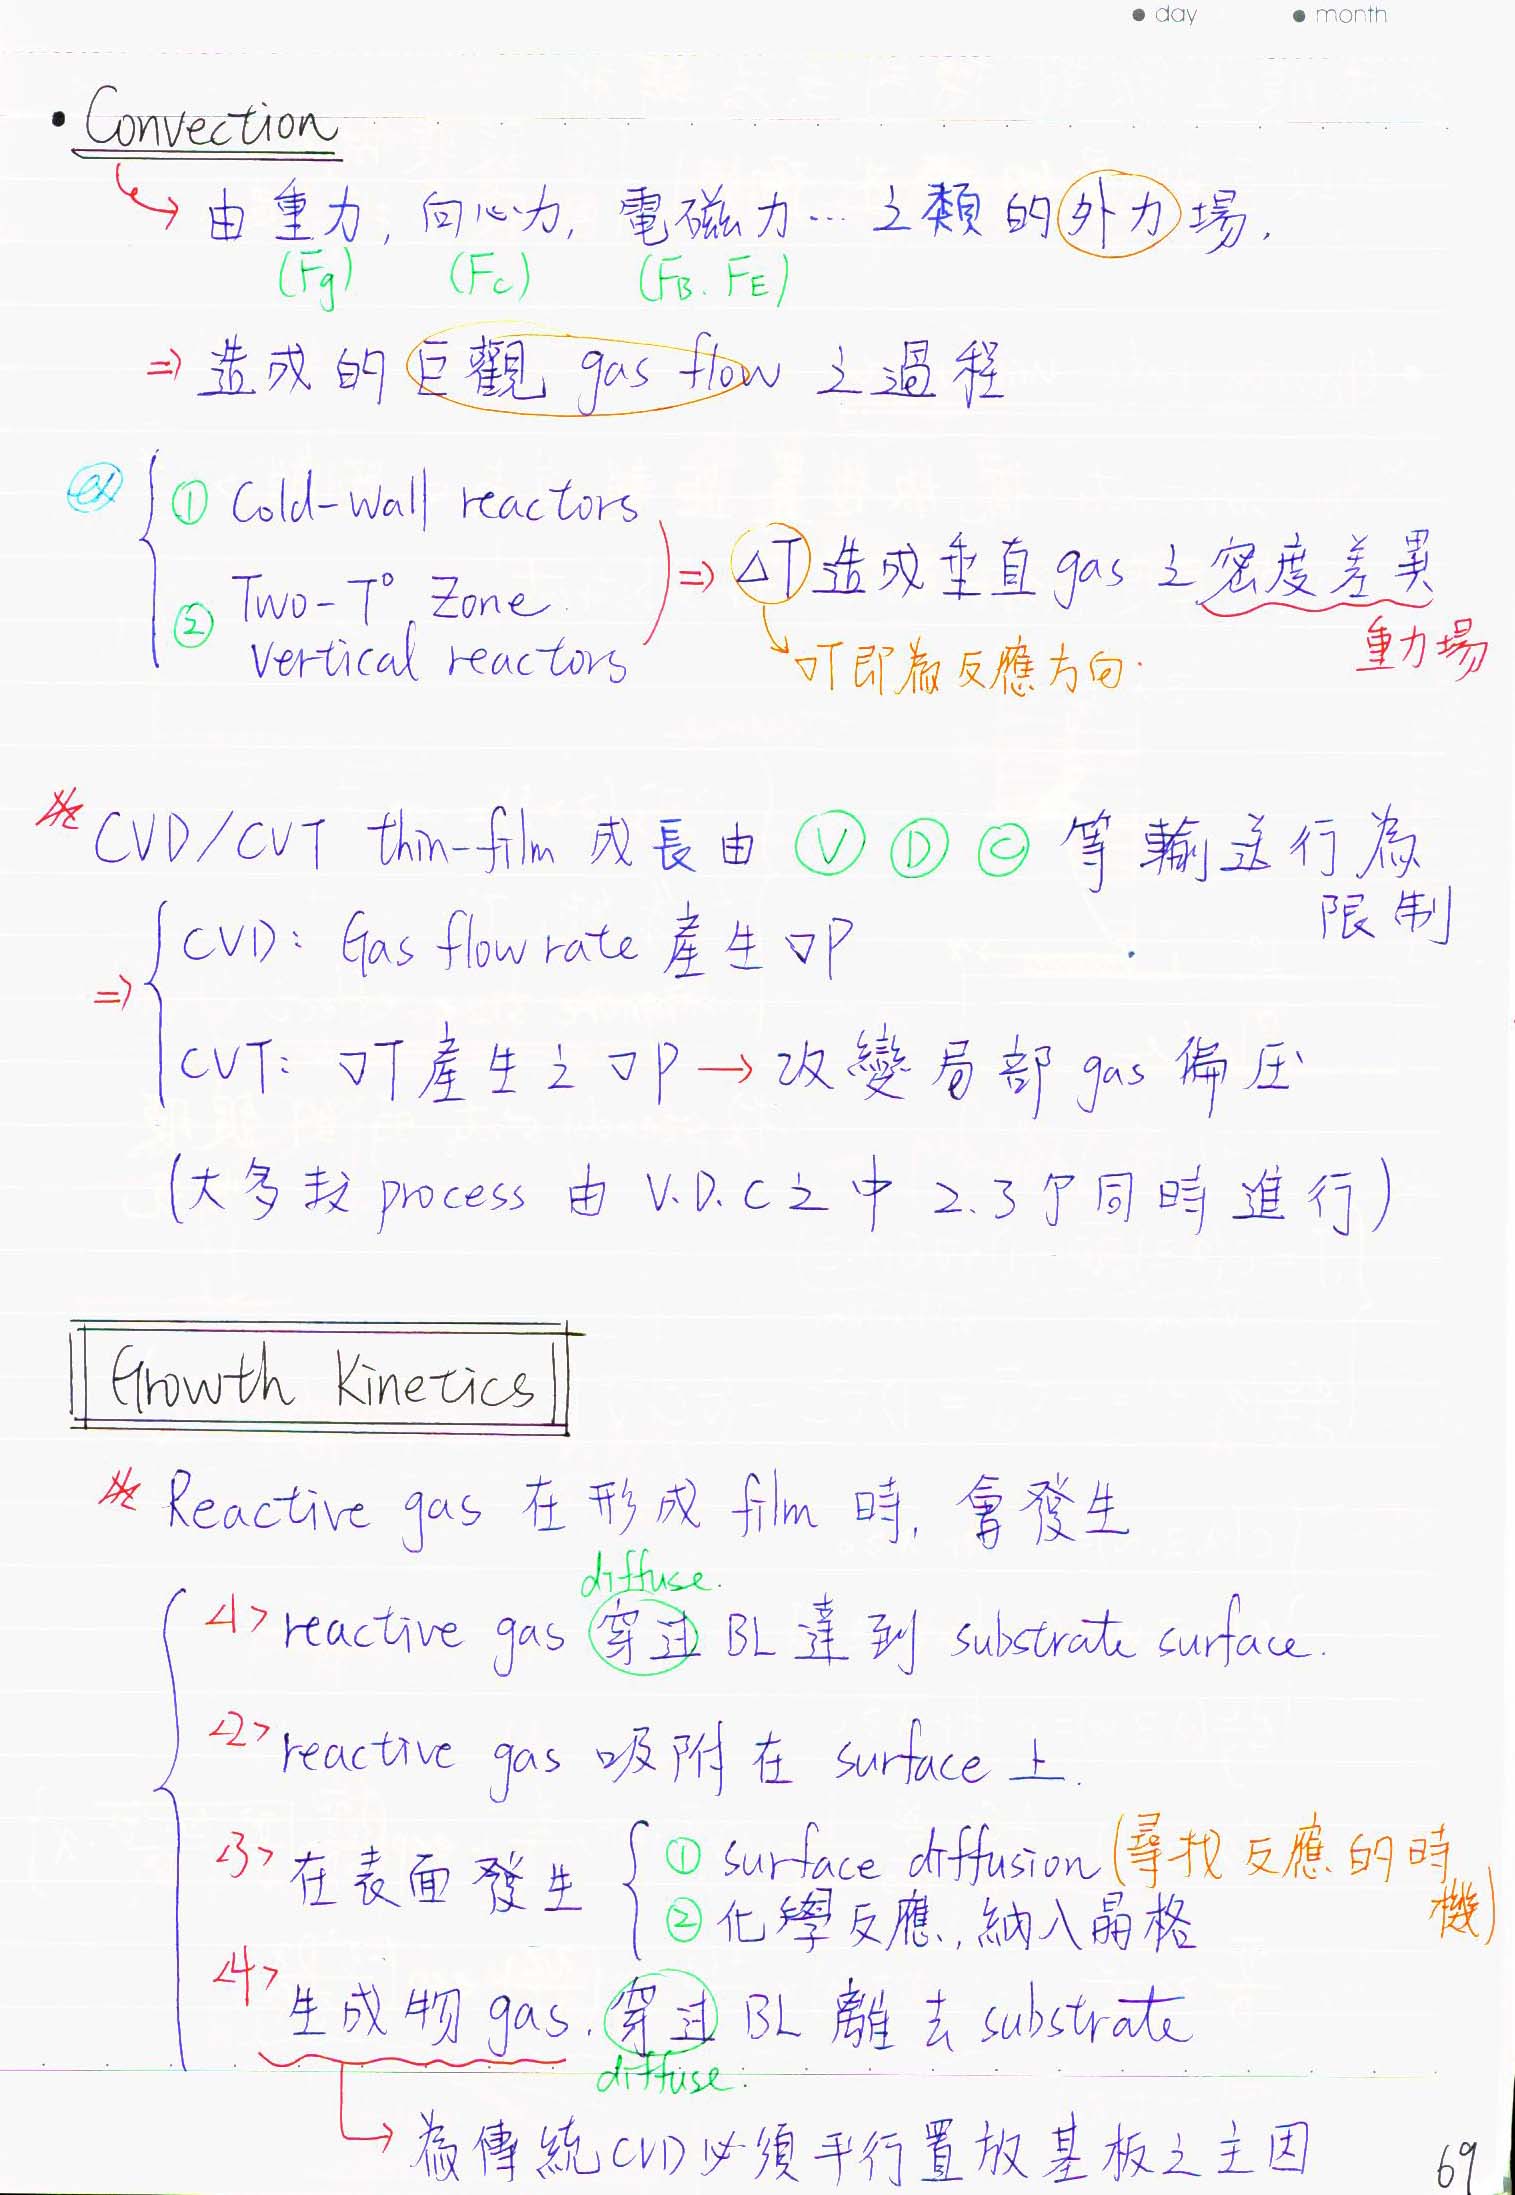 • day • month
• Convection
→ 由重力, 向心力, 電磁力… 之類的外力場,
(Fg) (Fc) (FB. FE)
⇒ 造成的巨觀 gas flow 之過程
ex
① Cold-wall reactors
② Two-T° Zone
vertical reactors
⇒ ΔT造成垂直 gas 之密度差異
重力場
▽T即為反應方向.
※ CVD/CVT thin-film 成長由 Ⓥ Ⓓ Ⓒ 等輸送行為
限制
⇒ CVD: Gas flow rate 產生▽P
CVT: ▽T產生之▽P → 改變局部 gas 偏压
(大多数 process 由 V.D.C之中 2.3个同時進行)
Growth Kinetics
※ Reactive gas 在形成 film 時, 會發生
diffuse.
<1> reactive gas 穿过 BL 達到 substrate surface.
<2> reactive gas 吸附在 surface 上.
<3> 在表面發生
① surface diffusion (尋找反應的時
機)
② 化學反應, 納入晶格
<4> 生成物 gas. 穿过 BL 離去 substrate
diffuse.
→ 為傳統CVD必須平行置放基板之主因
69